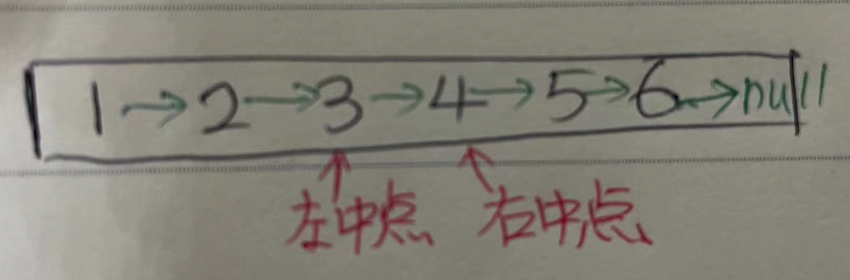 1→2→3→4→5→6→null
左中点 右中点